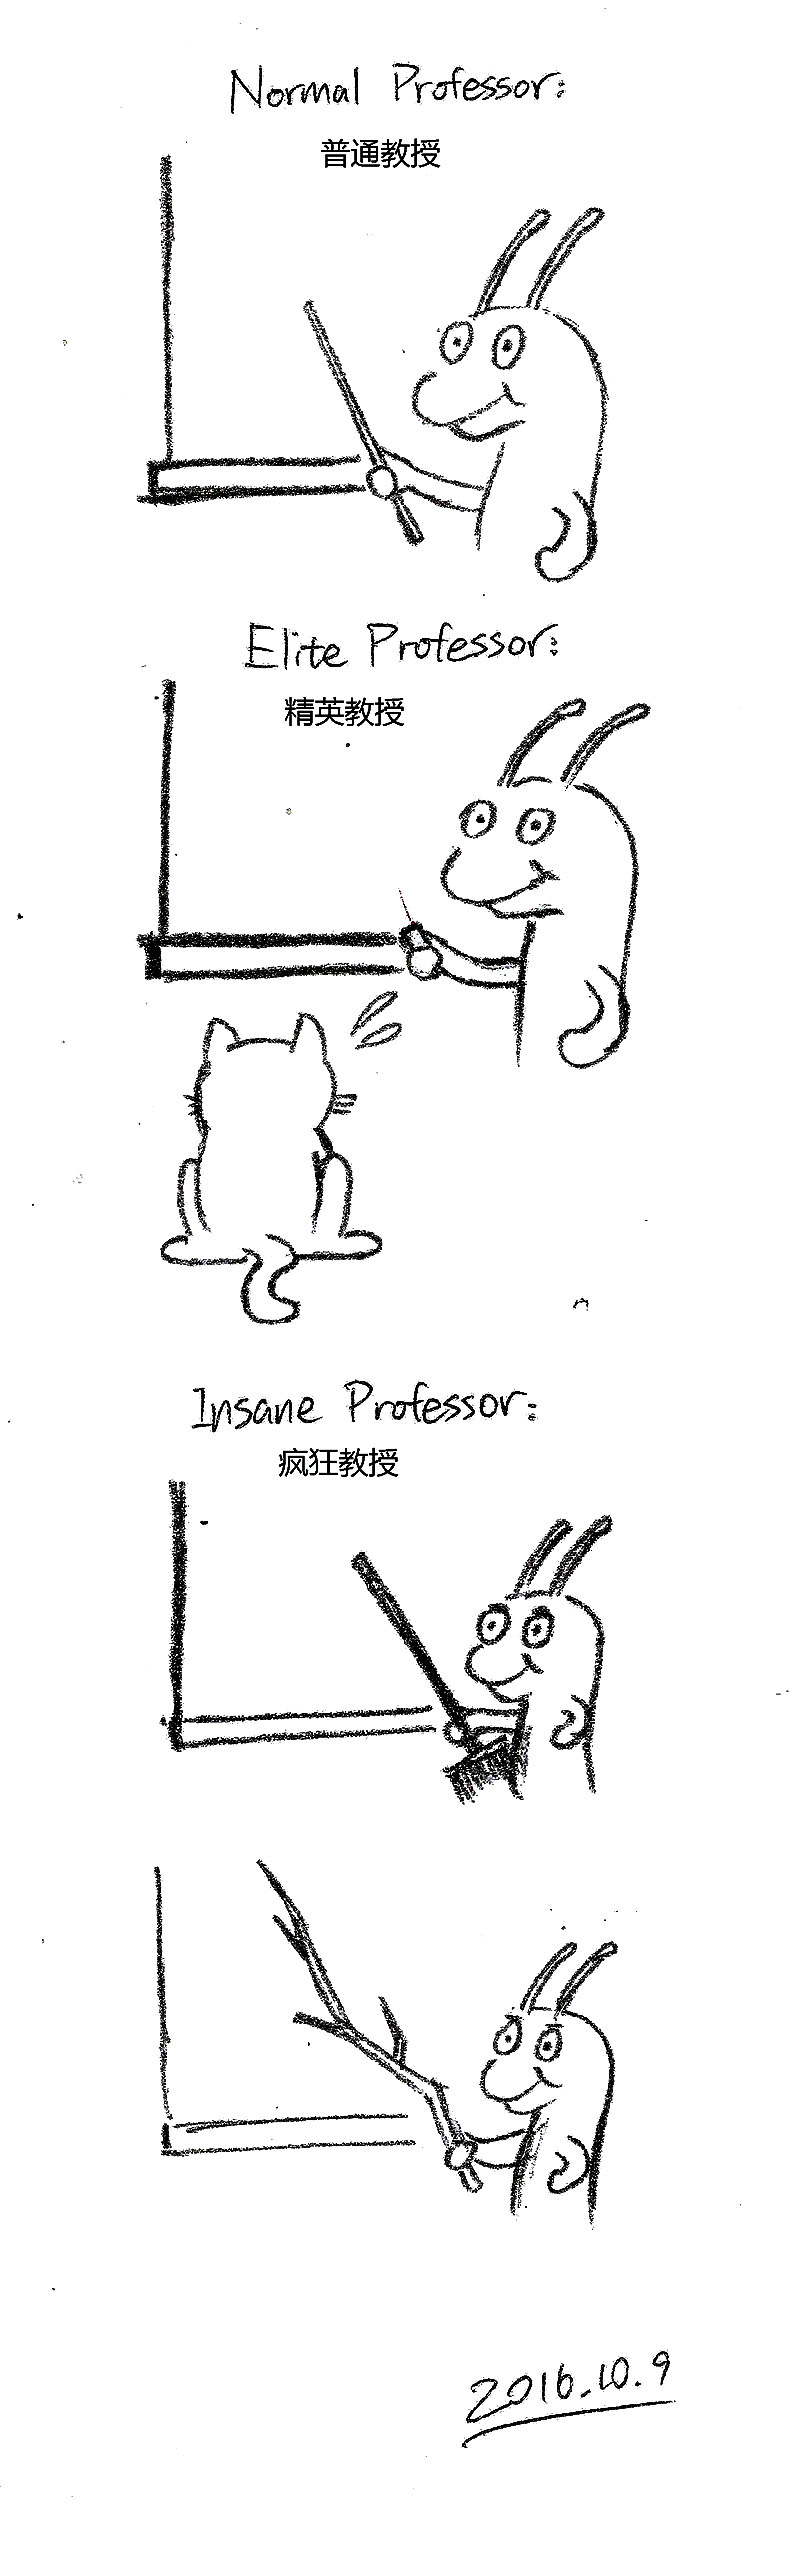 Normal Professor:
普通教授
Elite Professor:
精英教授
Insane Professor:
疯狂教授
2016.10.9